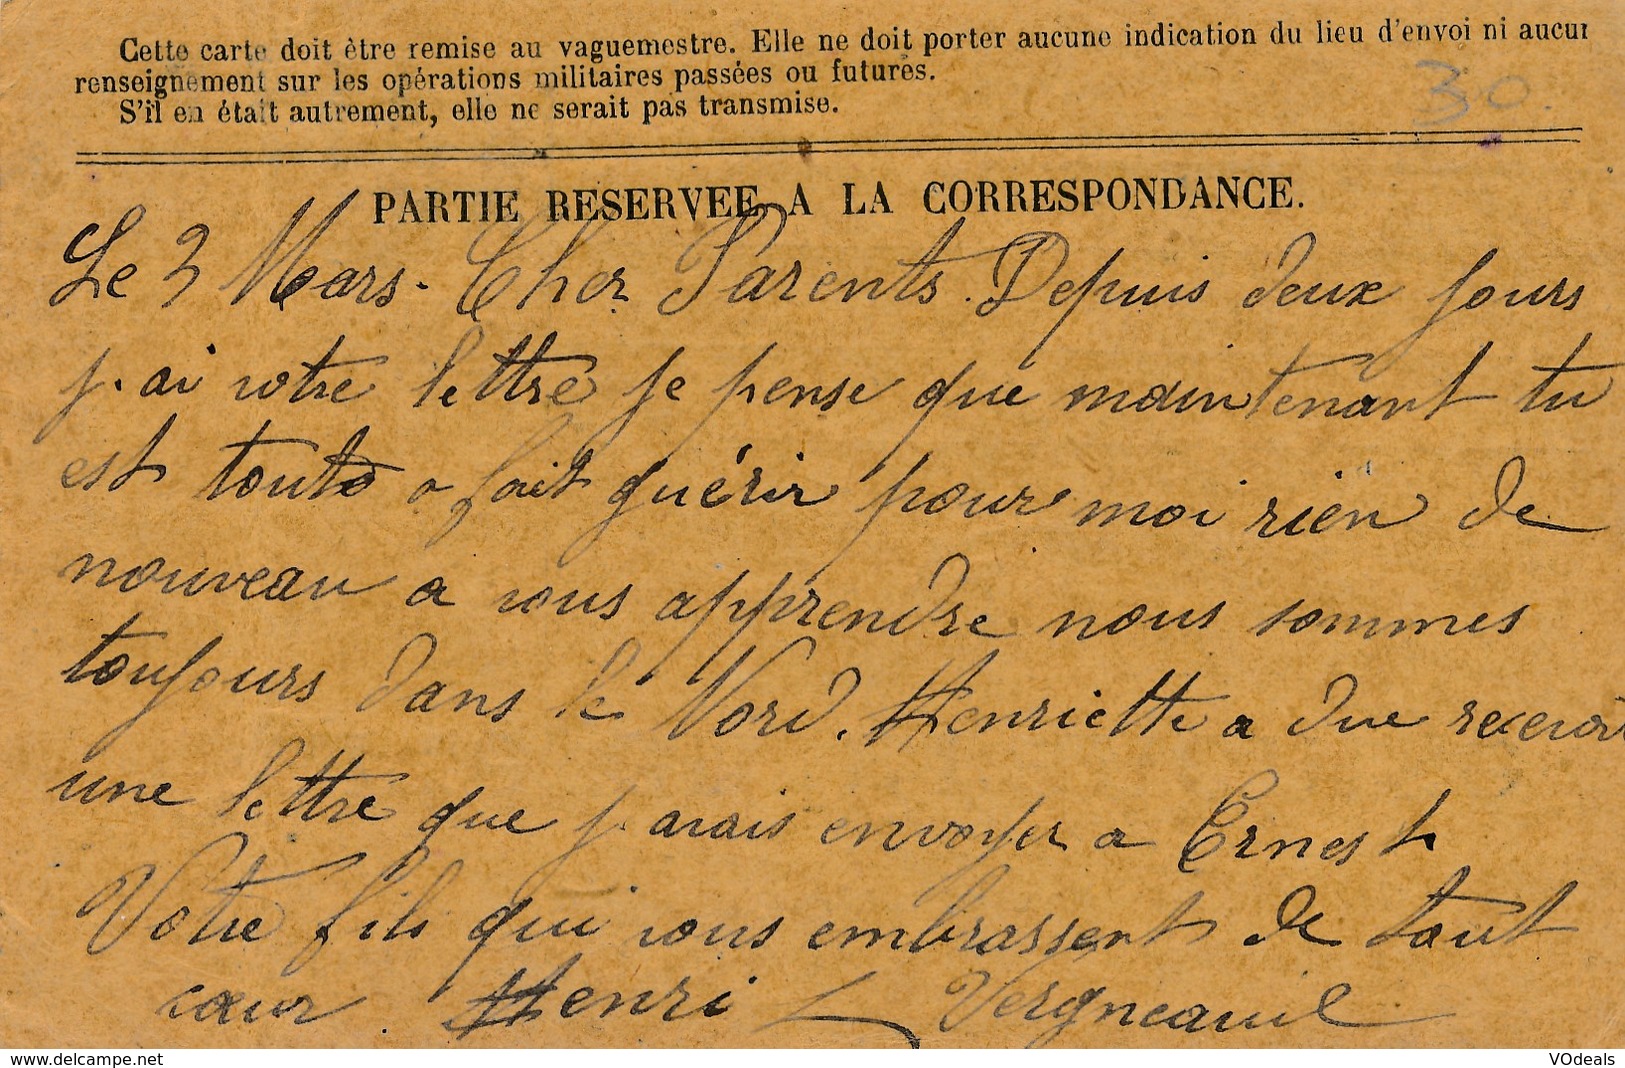 Cette carte doit être remise au vaguemestre. Elle ne doit porter aucune indication du lieu d'envoi ni aucun
renseignement sur les opérations militaires passées ou futures.
S'il en était autrement, elle ne serait pas transmise.
30.
PARTIE RESERVEE A LA CORRESPONDANCE.
Le 3 Mars. Cher Parents. Depuis deux jours
j.ai votre lettre je pense que maintenant tu
est tout a fait guérir pour moi rien de
nouveau a vous apprendre nous sommes
toujours dans le Nord. Henriette a due recevoir
une lettre que j avais envoyer a Ernest
Votre fils qui vous embrassent de tout
cœur Henri Vergneauil
www.delcampe.net
VOdeals